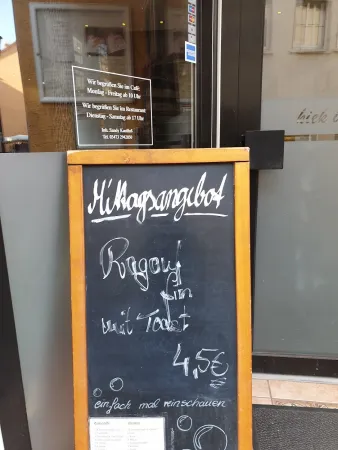 Wir begrüßen Sie im Café
Montag - Freitag ab 10 Uhr
Wir begrüßen Sie im Restaurant
Dienstag - Samstag ab 17 Uhr
Mittagsangebot
Ragout
fin
mit Toast
4,5€
einfach mal reinschauen